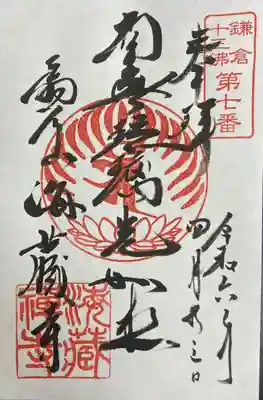 鎌倉
十三佛
第七番
奉拝
令和六年
四月廿三日
南無瑠璃光如来
扇谷 海蔵寺
海藏
禅寺